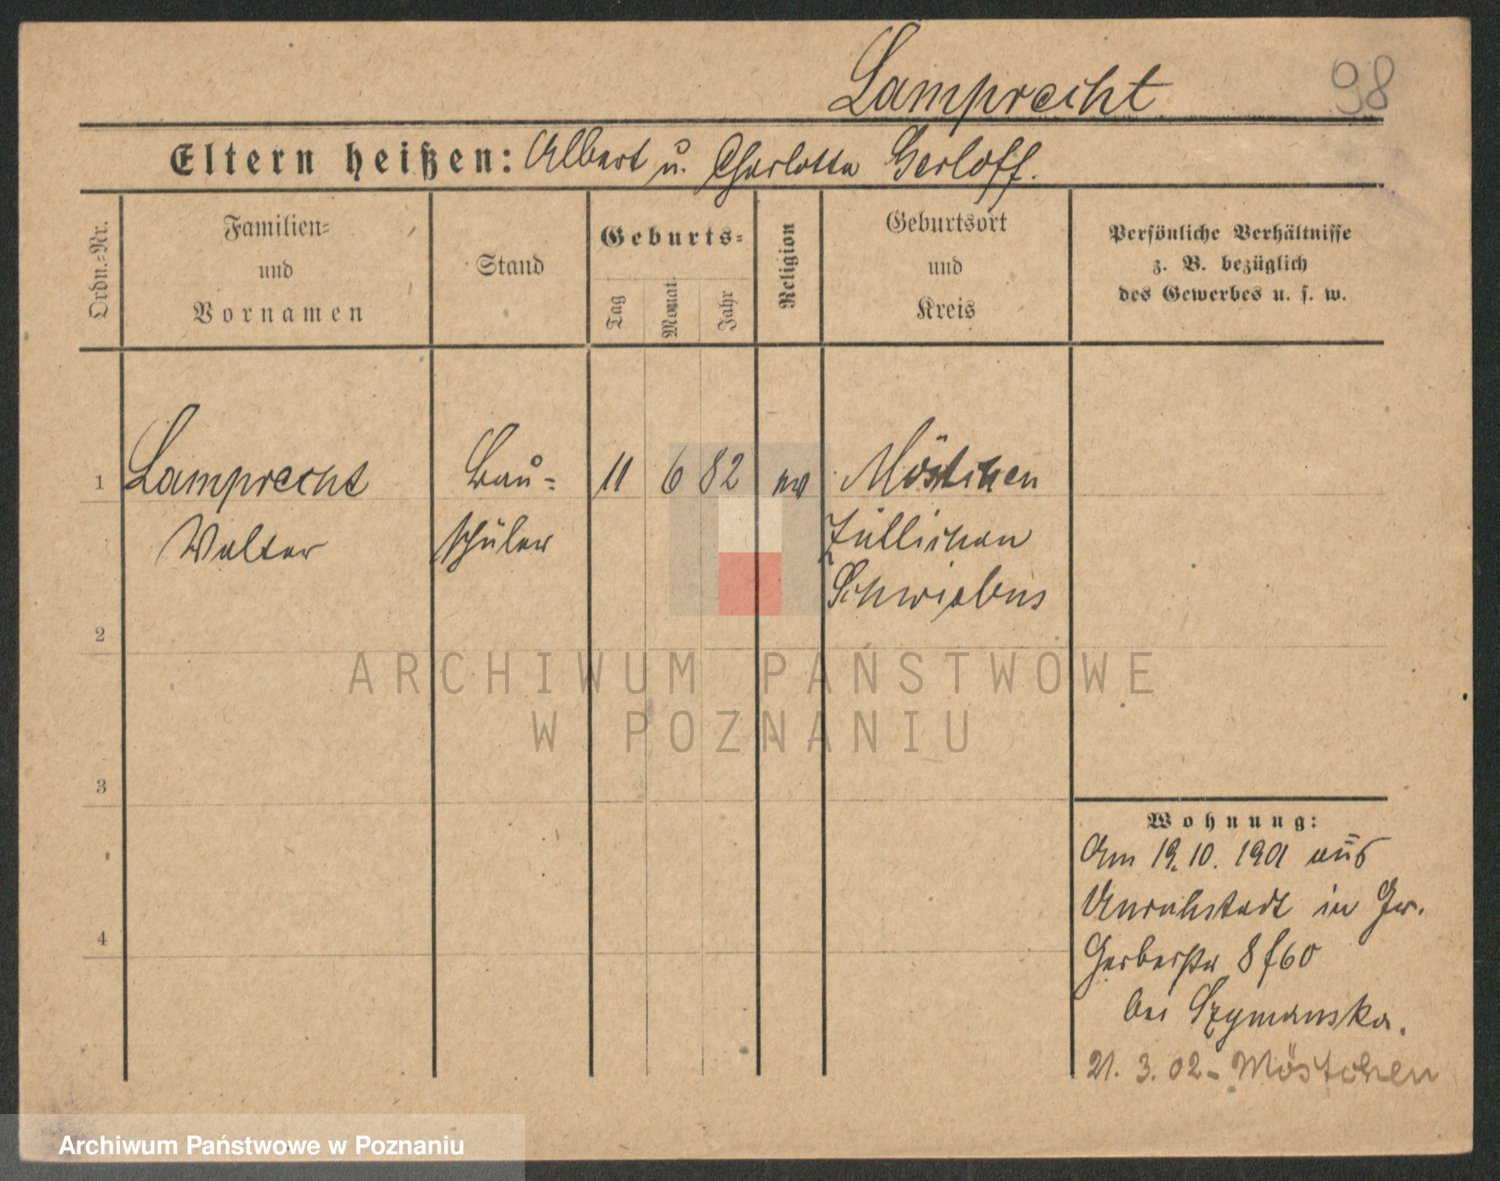 Lamprecht 98
Eltern heißen: Albert u. Charlotte Gerloff.
Ordn.-Nr.
Familien-
und
Vornamen
Stand
Geburts-
Tag
Monat
Jahr
Religion
Geburtsort
und
Kreis
Persönliche Verhältnisse
z. B. bezüglich
des Gewerbes u. s. w.
1 Lamprecht Bau- 11 6 82 ev Möstchen
Walter schüler Züllichau
Schwiebus
2
ARCHIWUM PAŃSTWOWE
W POZNANIU
3
Wohnung:
Am 19.10. 1901 aus
Unruhstadt in
4
Gerberstr 8
bei Szymanska.
21. 3. 02 - Möstchen
Archiwum Państwowe w Poznaniu